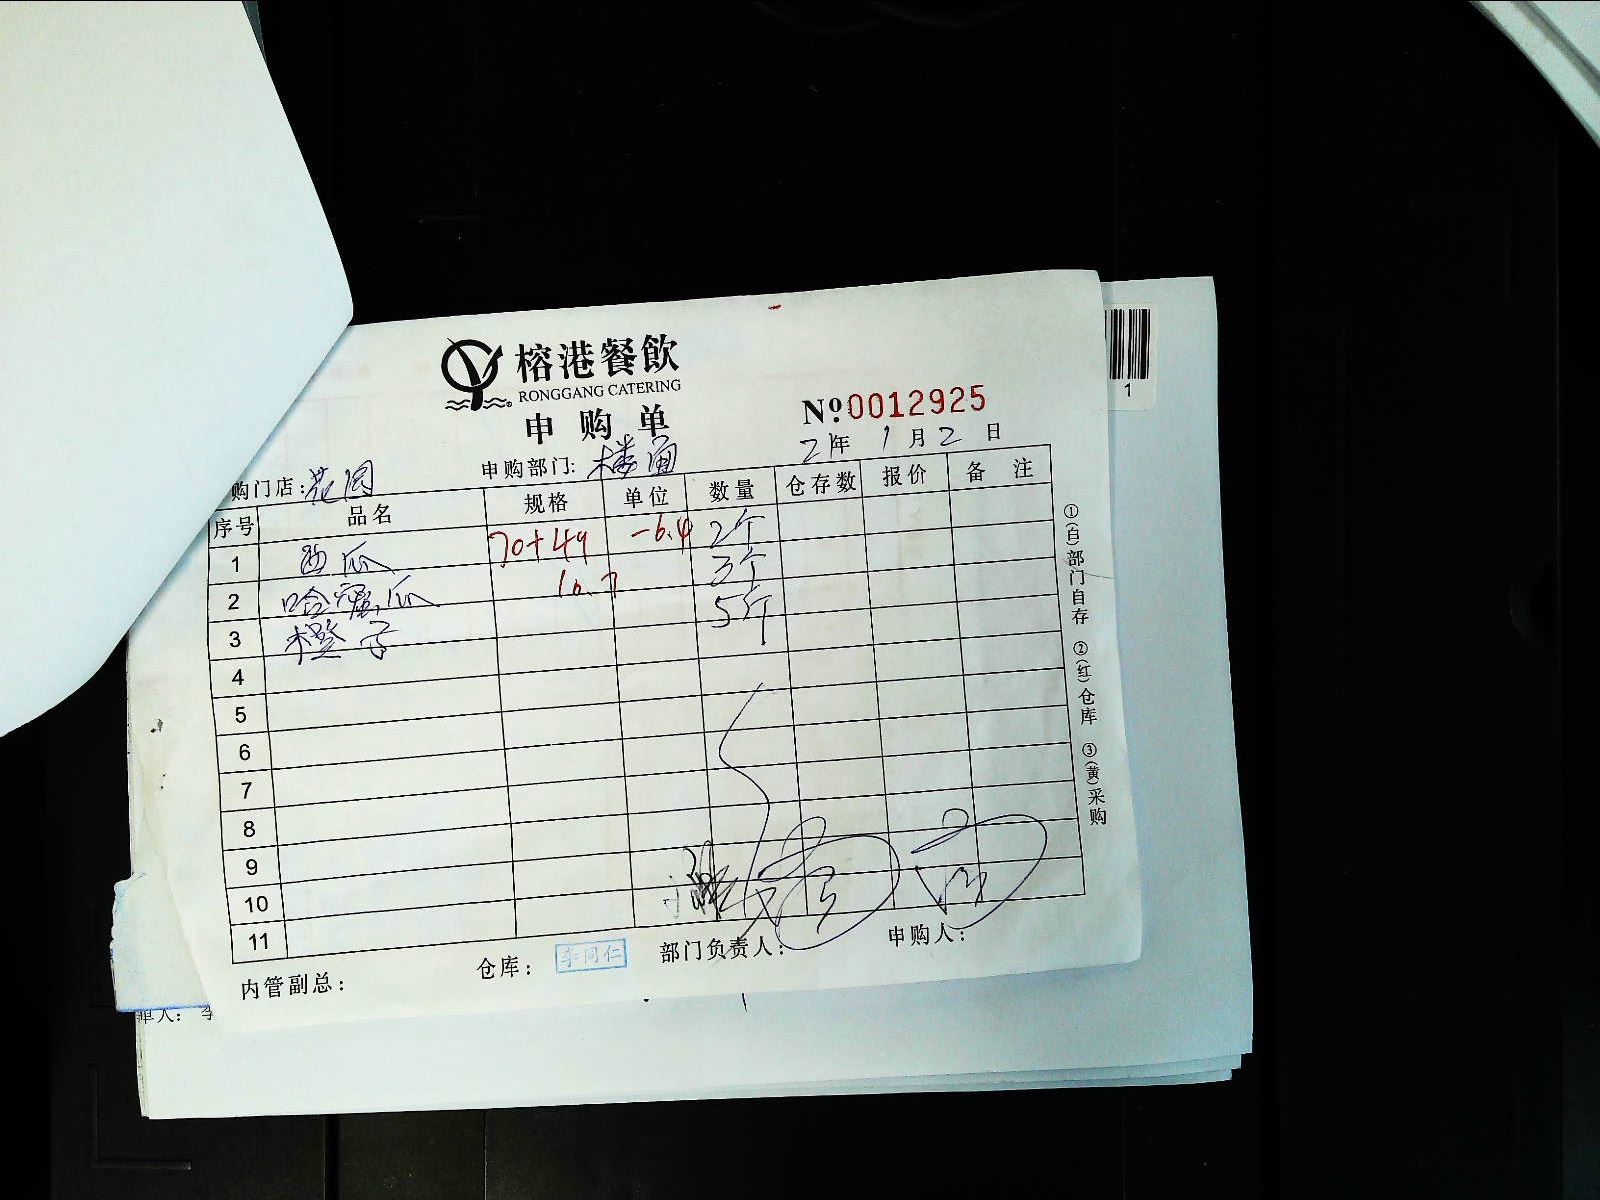 榕港餐飲
RONGGANG CATERING
申购单
№0012925
21年1月2日
购门店:花园 申购部门:楼面
序号 品名 规格 单位 数量 仓存数 报价 备注
1 西瓜 70+49 -6.4 2个
2 哈蜜瓜 10.7 3个
3 橙子 5个
4
5
6
7
8
9
10
11
内管副总: 仓库: 李同仁 部门负责人: 申购人:
①(白)部门自存 ②(红)仓库 ③(黄)采购
1